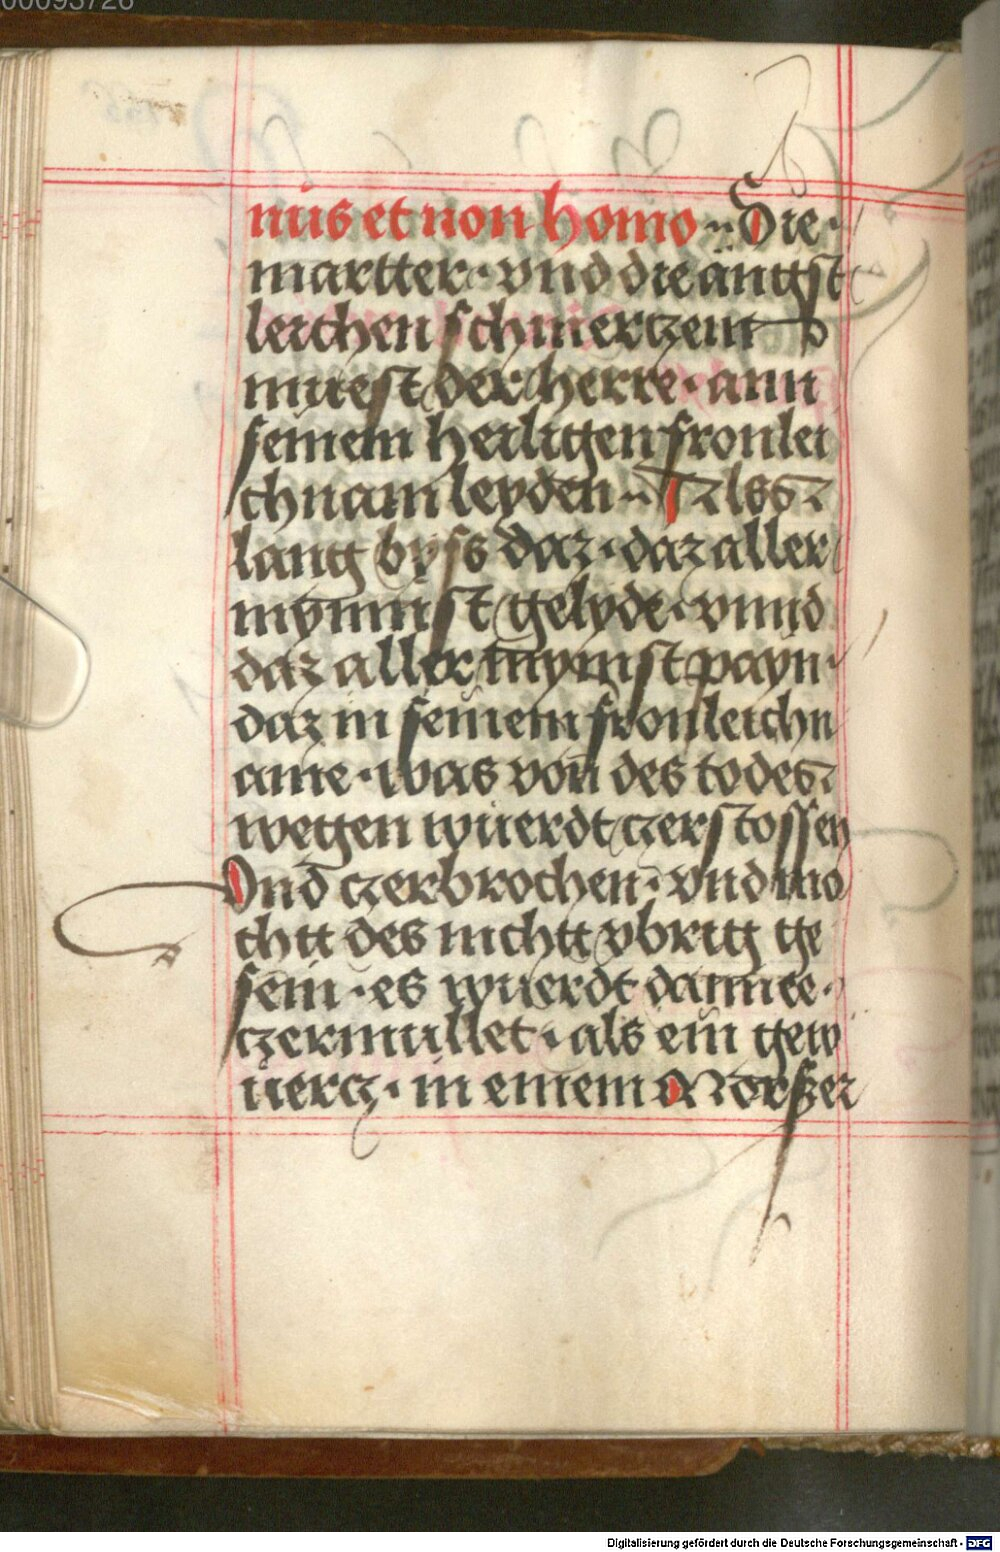 00093726
mis et non homo ·· Die ·
martter · vnd die ängst
leichen schmerczenn so
müest der herre · ann
seinem heiligen fronlei
chnam leyden ·· Alss
lang byss daz · daz aller
mynnist gelyde · vnnd
daz aller mynist payn ·
daz in seinem fronleichn
ame · was von des todes
wegen wuerdt czerstossen
Vnd czerbrochen · vnd mo
chtt des nichtt vbrig ge
sein · es wuerdt dannee ·
czermullet · als ein gew
uercz · in einem Morszer
Digitalisierung gefördert durch die Deutsche Forschungsgemeinschaft - DFG